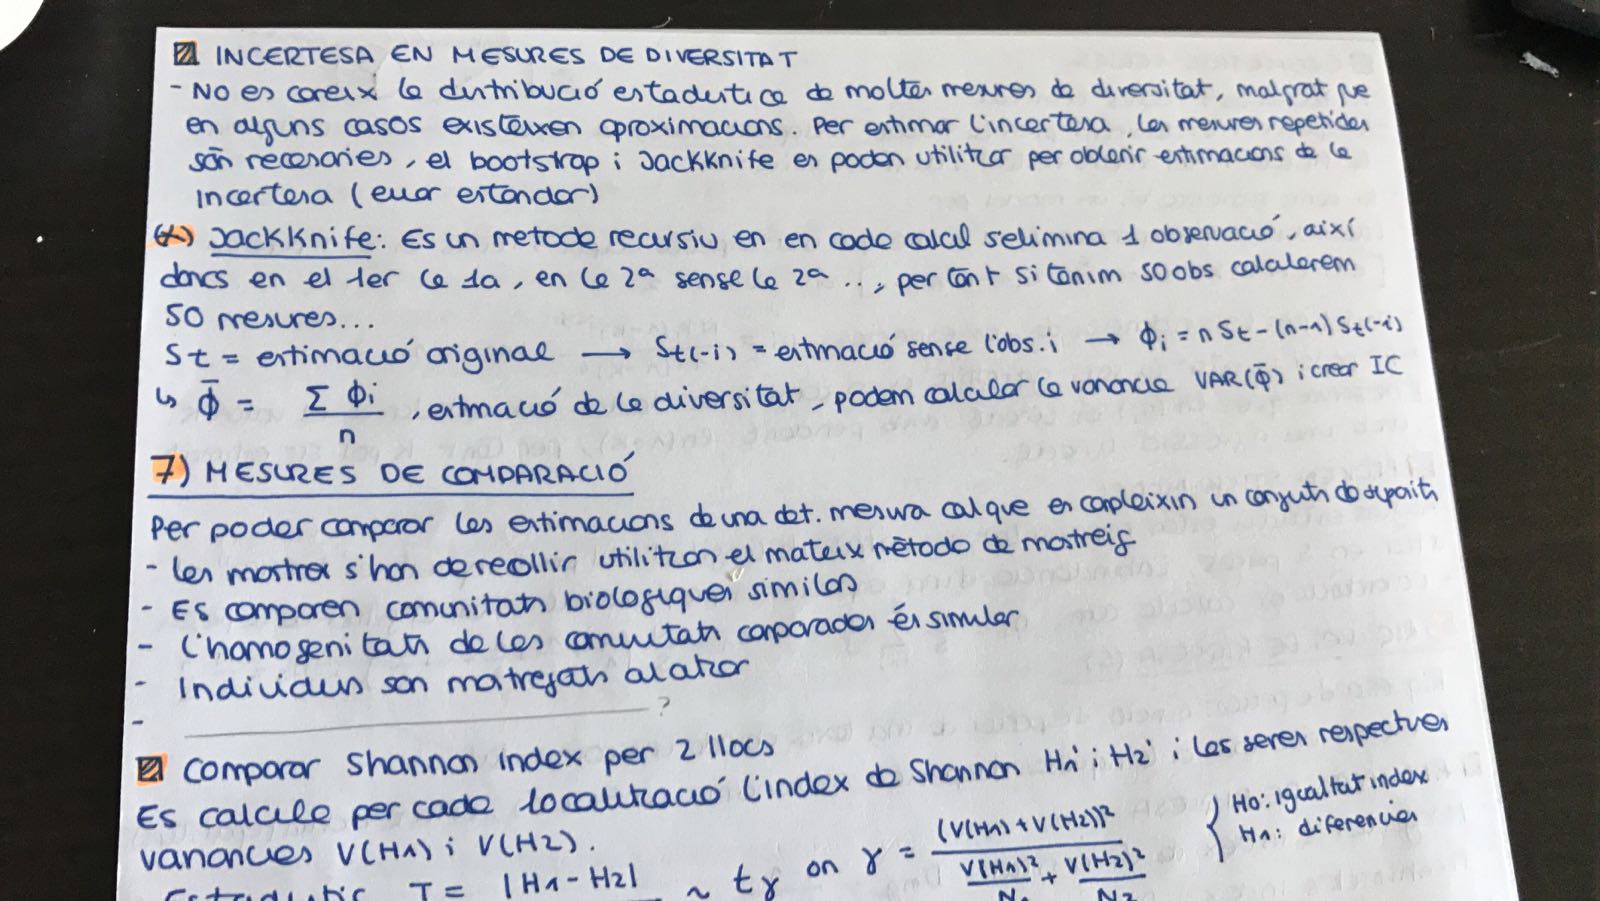 INCERTESA EN MESURES DE DIVERSITAT
- No es coneix la distribució estadística de moltes mesures de diversitat, malgrat que
en alguns casos existeixen aproximacions. Per estimar l'incertesa, les mesures repetides
són necesaries, el bootstrap i Jackknife es poden utilitzar per obtenir estimacions de la
incertesa (error estandar)
(*) Jackknife: Es un metode recursiu en en cada calcul s'elimina 1 observació, així
doncs en el 1er la 1a, en la 2ª sense la 2ª ..., per tant si tenim 50 obs calcularem
50 mesures...
St = estimació original → St(-i) = estimació sense l'obs. i → ϕi = n St - (n-1) St(-i)
↳ ϕ̄ = Σ ϕi / n , estimació de la diversitat, podem calcular la variancia VAR(ϕ̄) i crear IC
7) MESURES DE COMPARACIÓ
Per poder comparar les estimacions de una det. mesura cal que es compleixin un conjunts de suposits
- Les mostres s'han de recollir utilitzan el mateix mètodo de mostreig
- Es comparen comunitats biologiques similars
- L'homogenitats de les comunitats comparades és similar
- Individus son mostrejats al atzar
- ?
Comparar Shannon index per 2 llocs
Es calcula per cada localització l'index de Shannon H1' i H2' i les seves respectives
variancies V(H1) i V(H2).
Estadistic T = |H1 - H2| ~ tγ on γ = (V(H1) + V(H2))² / V(H1)²/N1 + V(H2)²/N2 } H0: igualtat index
H1: diferencies